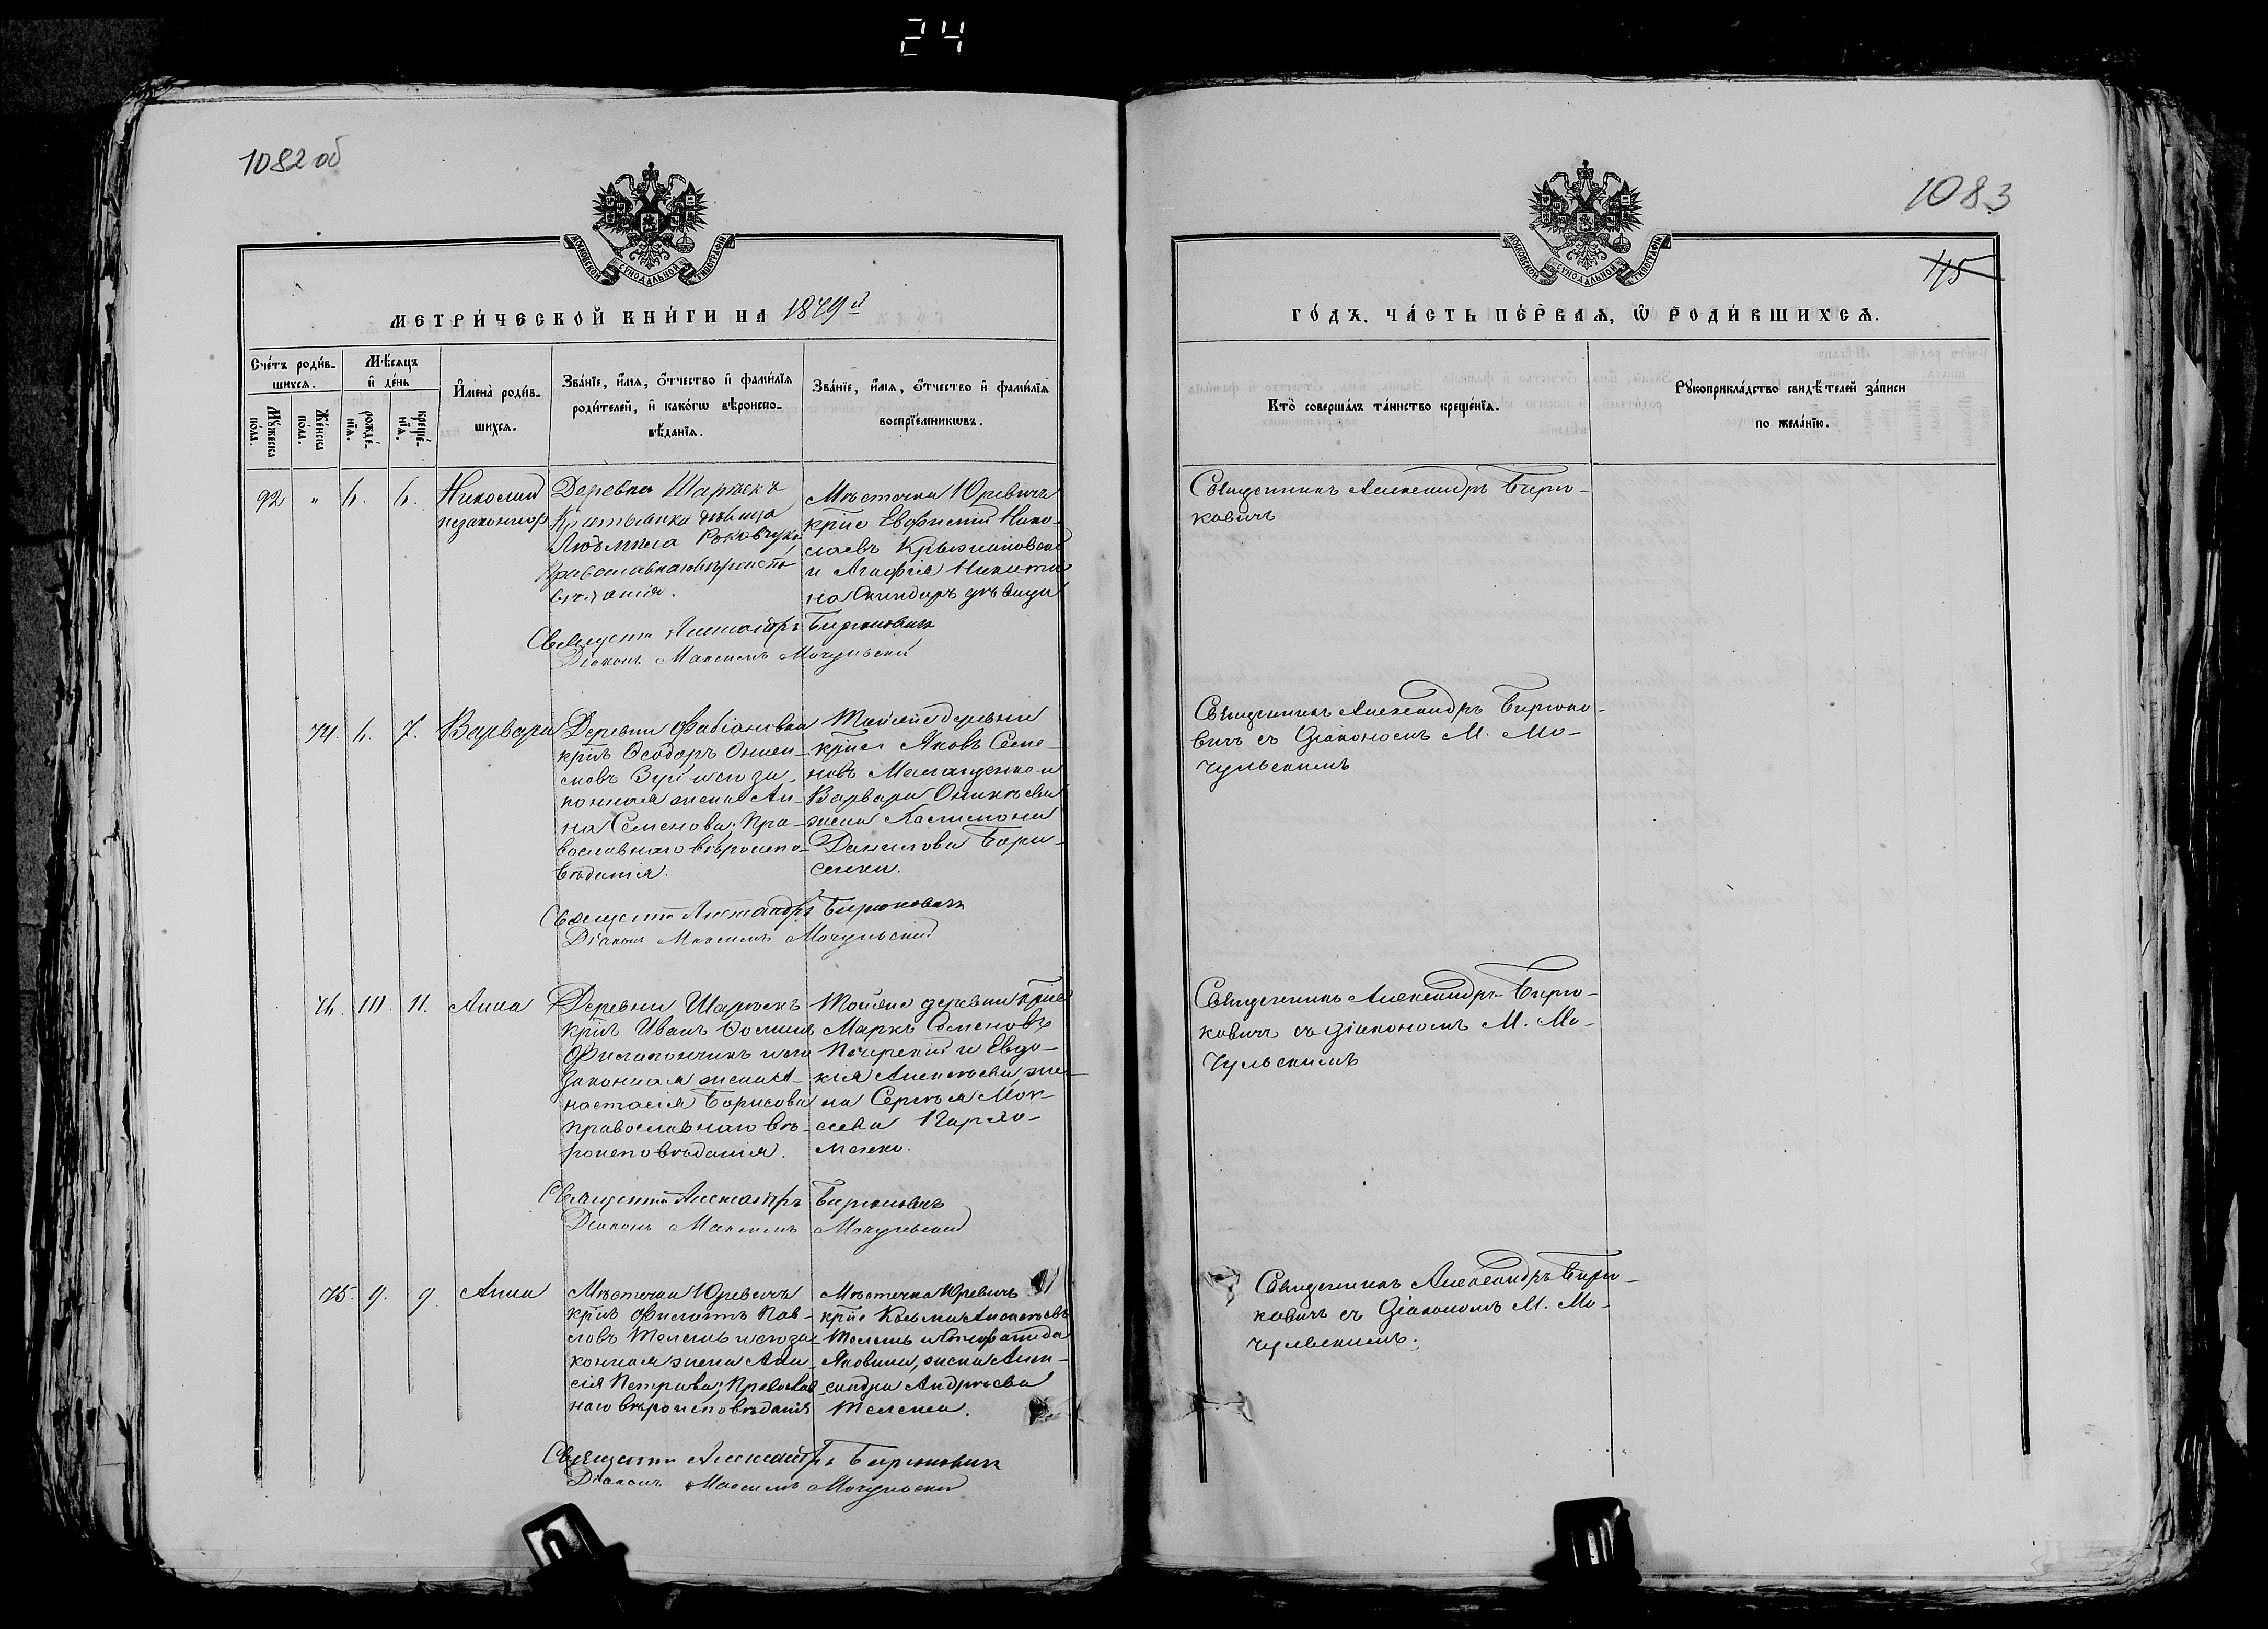 24
1082 об
МОСКОВСКОЙ СѴНОДАЛЬНОЙ ТИПОГРАФІИ
МЕТРИ́ЧЕСКОЙ КНИ́ГИ НА 1879й
Сче́тъ роди́в-
шихсѧ.
М́ѣсѧцъ
и҆ де́нь
Мꙋ́жеска
по́ла.
Же́нска
по́ла.
рожде́-
нїѧ.
креще́-
нїѧ.
И҆мена̀ роди́в-
шихсѧ.
Зва́нїе, и҆́мѧ, ѻ҆́тчество и҆ фами́лїѧ
роди́телей, и҆ како́гѡ вѣроиспо-
вѣ́данїѧ.
Зва́нїе, и҆́мѧ, ѻ҆́тчество и҆ фами́лїѧ
воспрїе́мникѡвъ.
92 " 6. 6. Николай
незаконнор
Деревни Шарѣекъ
Крестьянка дѣвица
Людмила
Православнаго вѣроиспо-
вѣданія.
Мѣстечка Юревичъ
крне Евфимій Нико-
лаевъ Крыжановскій
и Агафія Никити-
на дѣвица
Священни Александръ Бирюковичъ
Діаконъ Максимъ Мочульский
74. 6. 7. Варвара
Деревни Фабіановки
крнъ Ѳеодоръ Онисим-
овъ Зуй и его за-
конная жена Ан-
на Семенова; Пра-
вославнаго вѣроиспо-
вѣданія.
Тойже деревни
крне Яковъ Семе-
новъ и
Варвара
жена
Данилова Бори-
сенки.
Священни Александръ Бирюковичъ
Діаконъ Максимъ Мочульский
10. 11. Анна
Деревни Шарѣекъ
крнъ Иванъ Ѳоминъ
и его
законная жена А-
настасія Борисова
православнаго вѣ-
роисповѣданія.
Тойже деревни крне
Маркъ Семеновъ
Печерскій и Евдо-
кія Алексѣева, же-
на Сергѣя Мои-
сеева Пархо-
менко.
Священни Александръ Бирюковичъ
Діаконъ Максимъ Мочульский
75. 9. 9. Анна
Мѣстечка Юревичъ
крнъ Филиппъ Пав-
ловъ Телешъ и его за-
конная жена Ани-
сія Петрова; Православ-
наго вѣроисповѣданія
Мѣстечка Юревичъ
крне Козьма
Телешъ и Степанида
Яковлева, жена Алек-
сандра Андреева
Телеша.
Священни Александръ Бирюковичъ
Діаконъ Максимъ Мочульский
1083
115
МОСКОВСКОЙ СѴНОДАЛЬНОЙ ТИПОГРАФІИ
ГО́ДЪ. ЧА́СТЬ ПЕ́РВАѦ, Ѡ҆ РОДИ́ВШИХСѦ.
Кто̀ соверша́лъ та́инство креще́нїѧ.
Рꙋкоприкла́дство свидѣ́телей за́писи
по жела́нїю.
Священникъ Александръ Бирю-
ковичъ
Священникъ Александръ Бирюко-
вичъ съ Діакономъ М. Мо-
чульскимъ
Священникъ Александръ Бирю-
ковичъ съ діакономъ М. Мо-
чульскимъ
Священникъ Александръ Бирю-
ковичъ съ Діакономъ М. Мо-
чульскимъ.